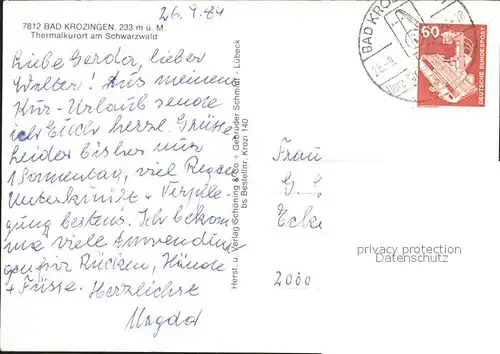 26.9.84
7812 BAD KROZINGEN, 233 m ü. M.
Thermalkurort am Schwarzwald
Liebe Gerda, lieber
Walter! Aus meinem
Kur-Urlaub sende
ich Euch herzl. Grüsse
Leider bisher nur
1 Sonnentag, viel Regen
Unterkunft + Verpfle-
gung bestens. Ich bekom
me viele Anwendun
gen für Rücken, Hände
+ Füsse. Herzlichst
Magda
Herst. u. Verlag Schöning & Co + Gebrüder Schmidt · Lübeck
bs Bestellnr. Krozi 140
BAD KROZINGEN
60
DEUTSCHE BUNDESPOST
Frau
G.
Ecke
privacy protection
Datenschutz
2000